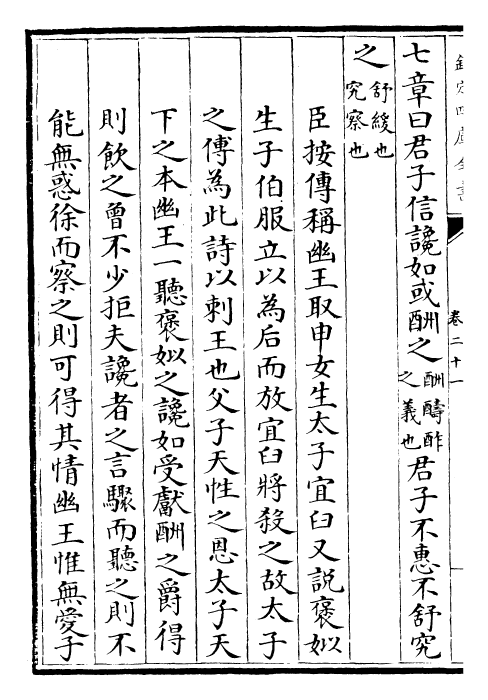 欽定四庫全書
卷二十一
七章曰君子信讒如或酬之酬醻酢之義也君子不惠不舒究
之舒緩也究察也
臣按傳稱幽王取申女生太子宜臼又説褒姒
生子伯服立以為后而放宜臼將殺之故太子
之傅為此詩以刺王也父子天性之恩太子天
下之本幽王一聽褒姒之讒如受獻酬之爵得
則飲之曾不少拒夫讒者之言驟而聽之則不
能無惑徐而察之則可得其情幽王惟無愛子